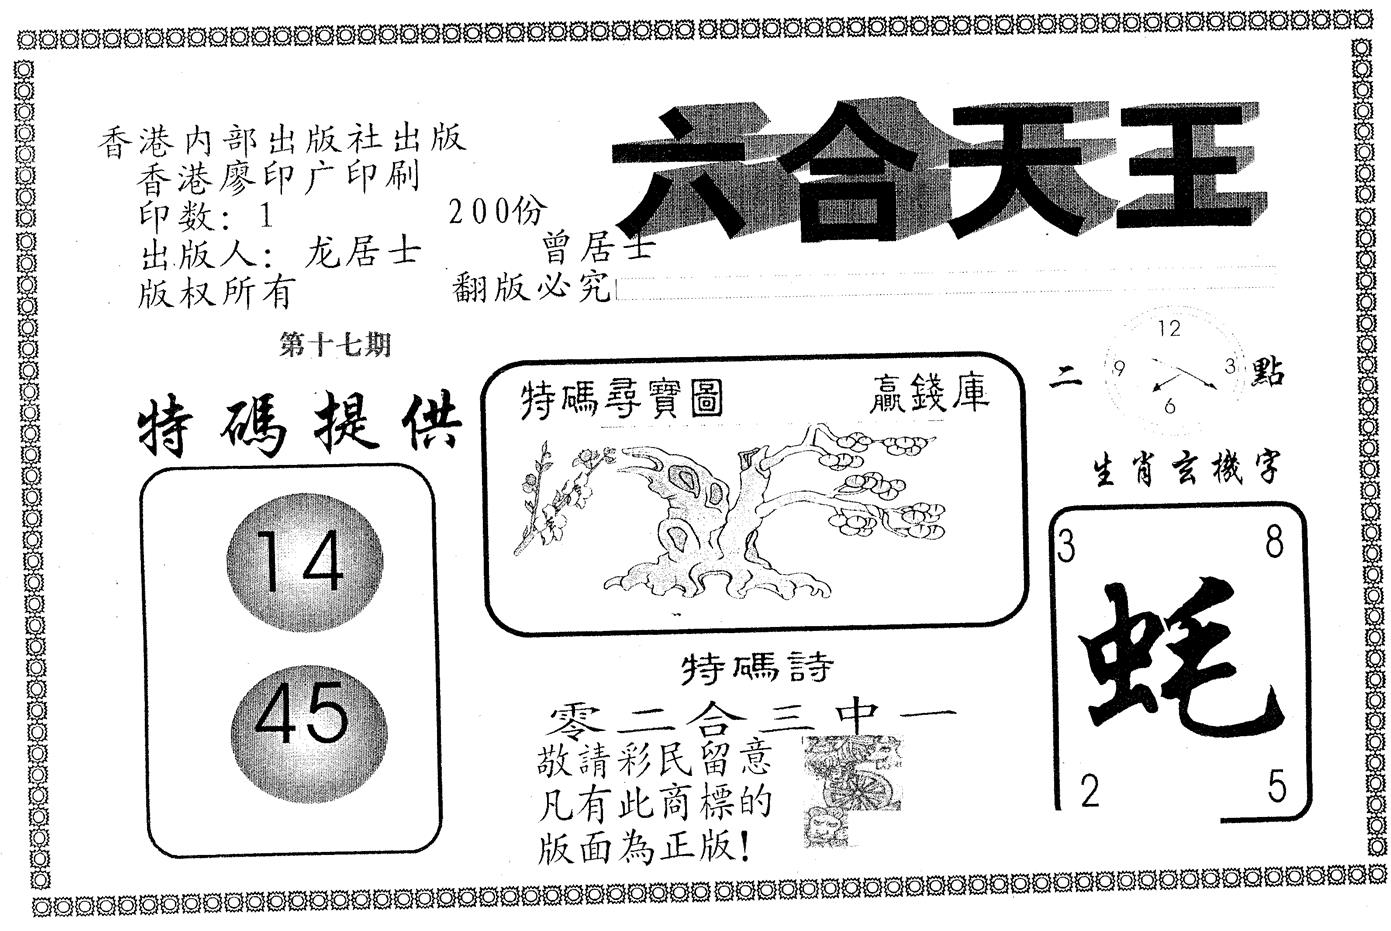 六合天王
香港内部出版社出版
香港廖印广印刷
印数：1 200份
出版人：龙居士 曾居士
版权所有 翻版必究
第十七期
特碼提供
14
45
特碼尋寶圖 贏錢庫
特碼詩
零二合三中一
敬請彩民留意
凡有此商標的
版面為正版！
二 點
12
9 3
6
生肖玄機字
3 8
蚝
2 5